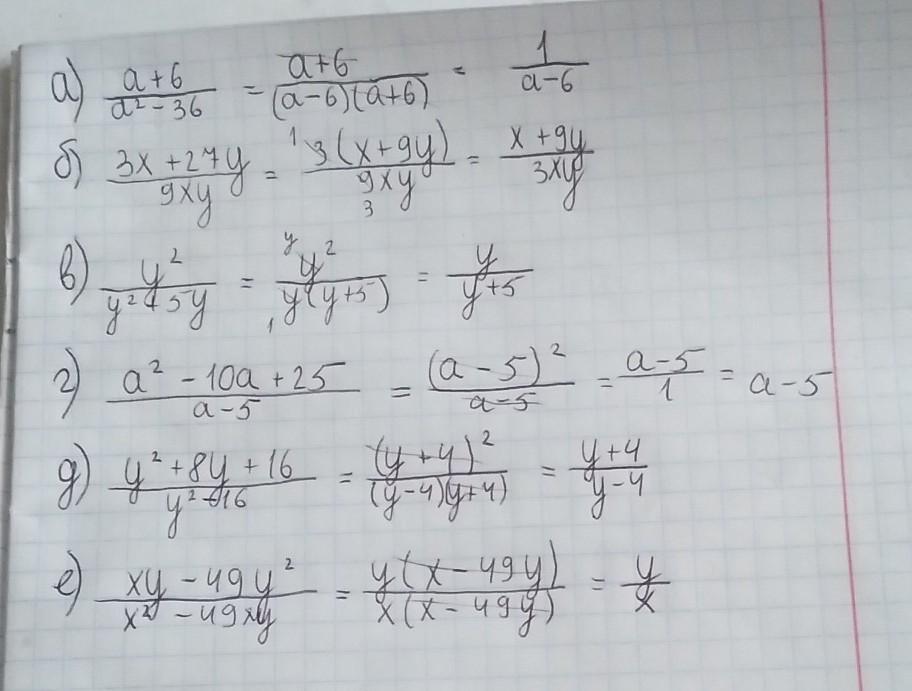 а) (a+6)/(a² - 36) = (a+6)/((a-6)(a+6)) = 1/(a-6)
б) (3x + 27y)/(9xy) = (¹3(x+9y))/(9xy ₃) = (x + 9y)/(3xy)
в) y²/(y² + 5y) = (ʸy²)/(₁y(y+5)) = y/(y+5)
г) (a² - 10a + 25)/(a-5) = (a-5)²/(a-5) = (a-5)/1 = a-5
д) (y² + 8y + 16)/(y² - 16) = (y+4)²/((y-4)(y+4)) = (y+4)/(y-4)
е) (xy - 49y²)/(x² - 49xy) = (y(x - 49y))/(x(x - 49y)) = y/x